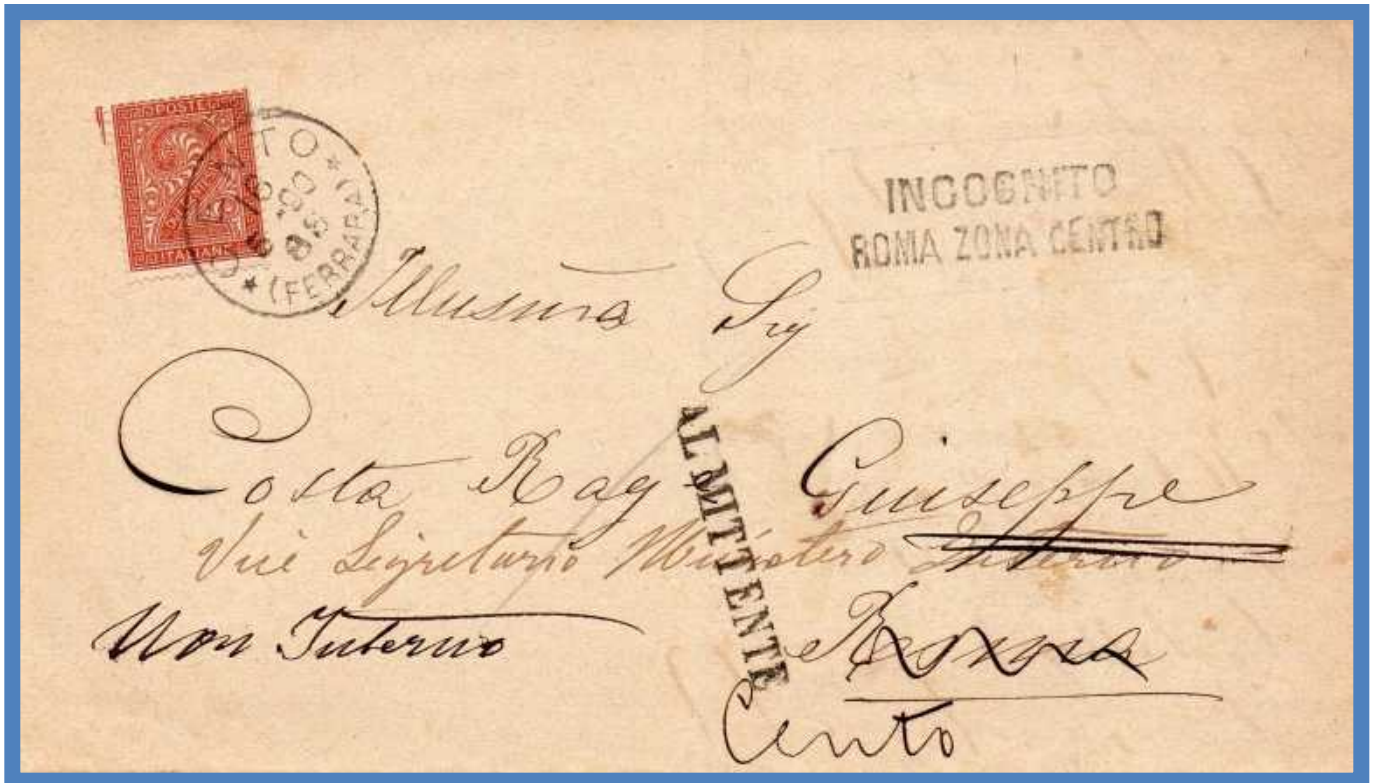 POSTE
ITALIANE
CENTO
(FERRARA)
INCOGNITO
ROMA ZONA CENTRO
Illus Sig
Costa Rag Giuseppe
Vice Segretario Ministero Interno
Non Interno
Roma
AL MITTENTE
Cento